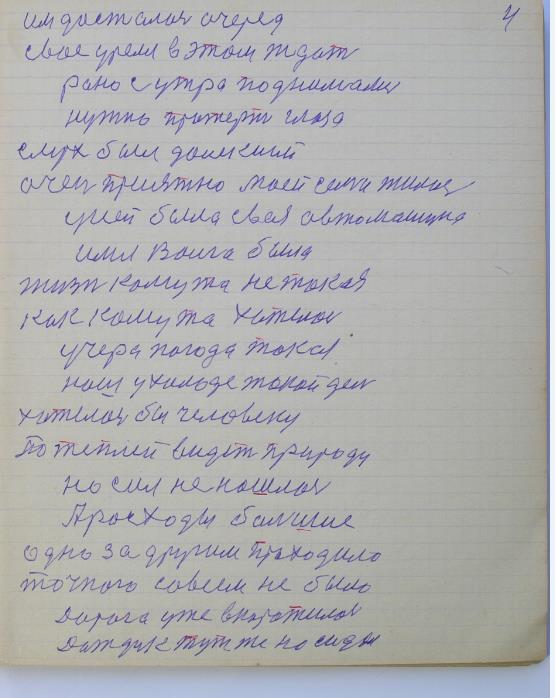 4
им досталос очеред
свое урем в этом ждат
рано с утра поднимали
нужно протерт глаза
слух был должний
очен приятно моей сети жилос
у ней была своя автомашина
имя Волга была
жизн кому та не такая
как кому та хотелос
учера погода такая
наш у холоде такой ден
хотелос бы человеку
Потеплей видет природу
но сил не нашлос
Арасходы балшие
одно за другим праходило
точного совсем не было
дорога уже вкоротилос
Даждик тут же